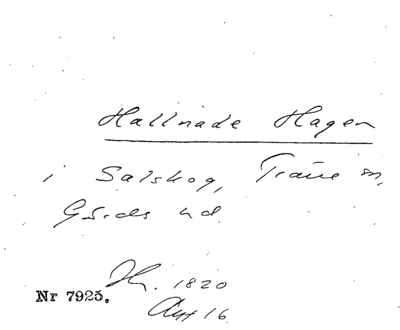 Hallnade Hagen
i Salskog, Träne sn,
Gärds hd
Nr 7925. 1820
16